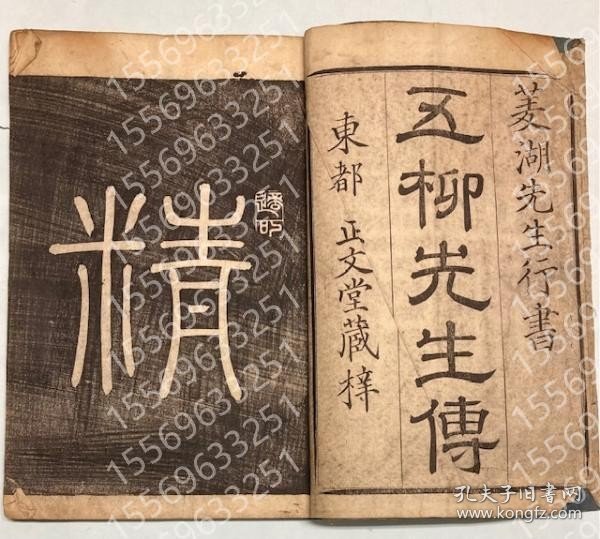 菱湖先生行書
五柳先生傳
東都 正文堂蔵梓
精
15569633251
孔夫子旧书网
www.kongfz.com